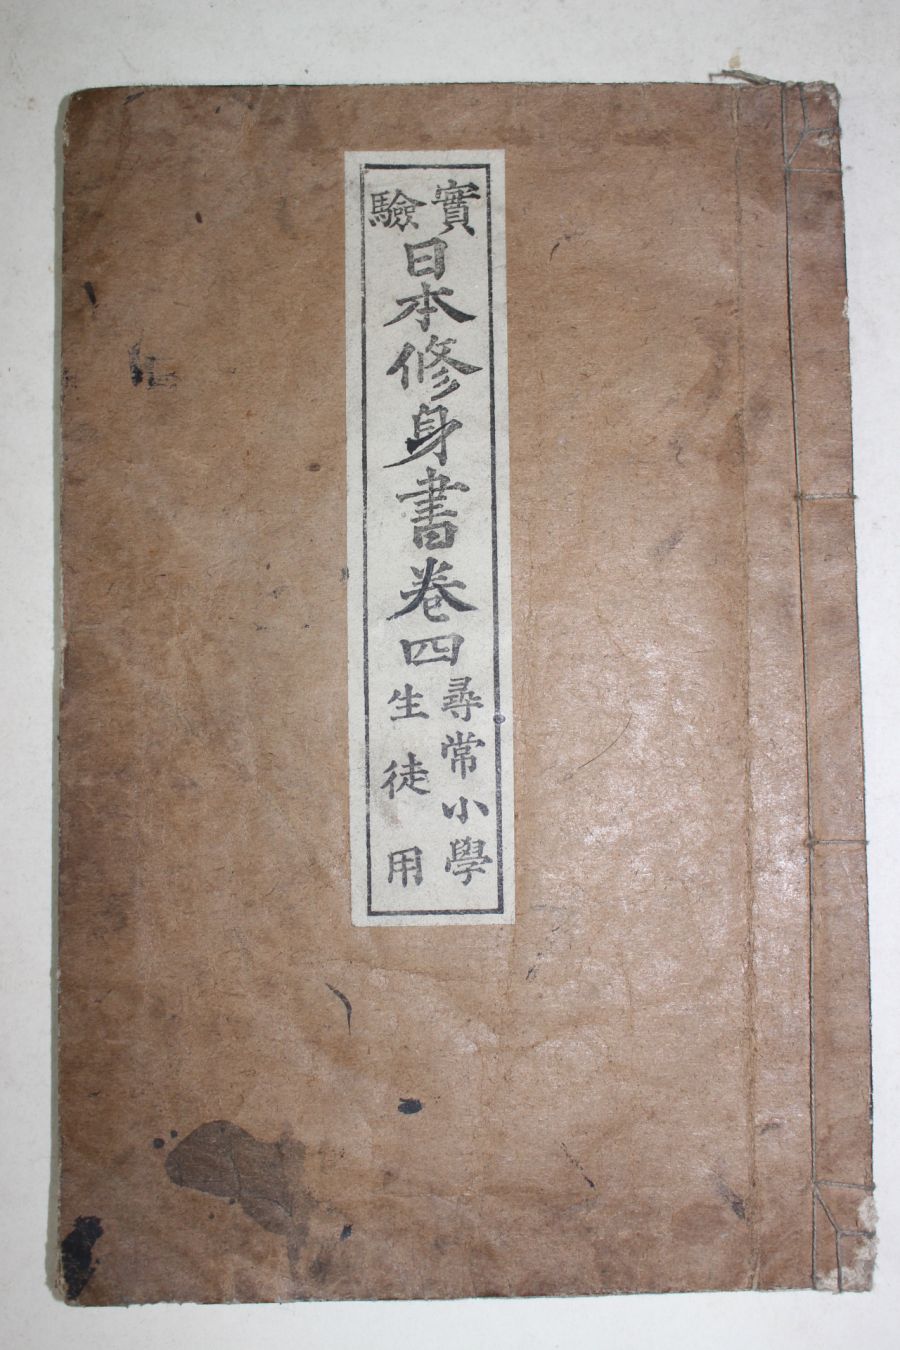 實驗
日本修身書卷四
尋常小學
生徒用